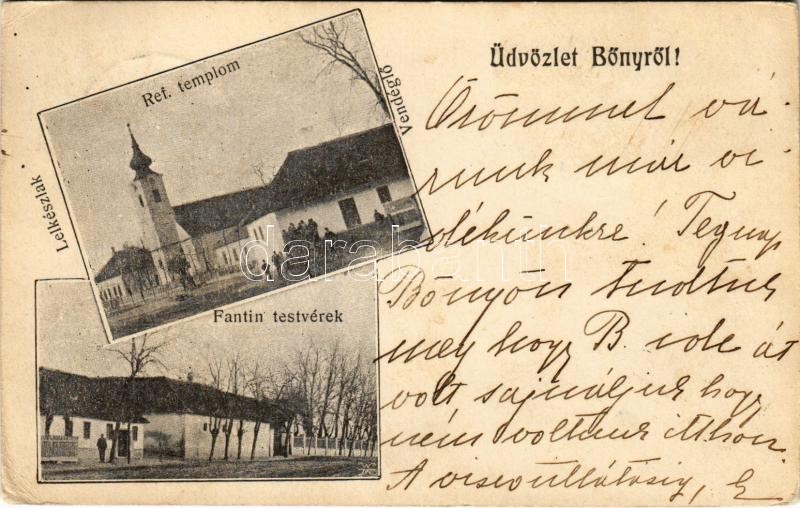 Üdvözlet Bőnyről!
Ref. templom
Vendéglő
Lelkészlak
Fantin testvérek
darabanth
Örömmel vá-
runk már vi
dékünkre! Tegnap
Bőnyön tudtuk
meg hogy B. ide át
volt sajnáljuk hogy
nem voltunk itthon.
A viszontlátásig,